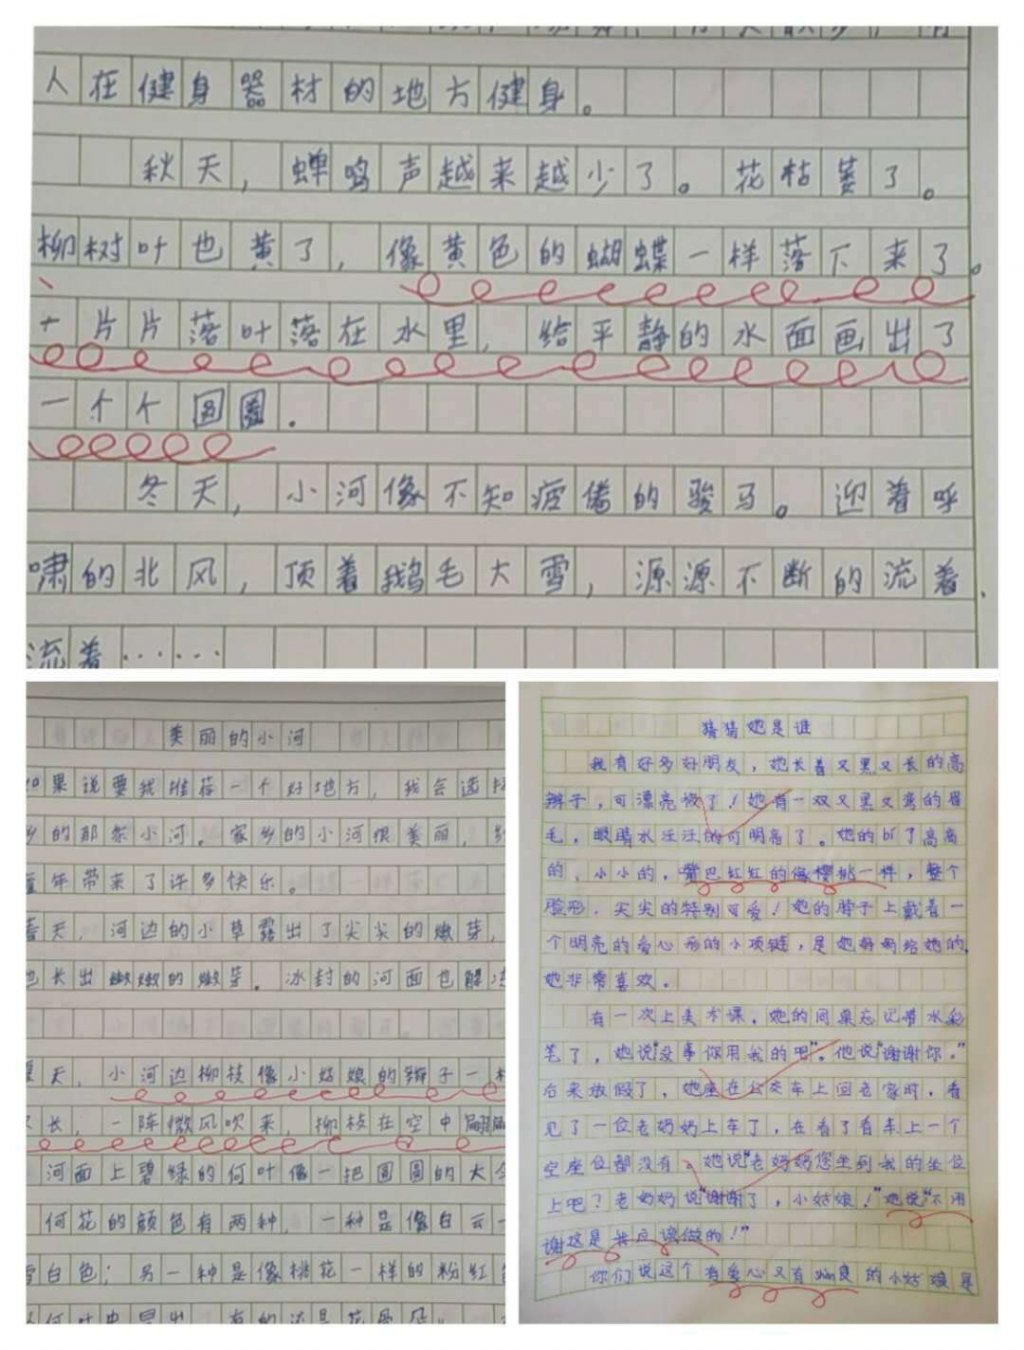 人在健身器材的地方健身。
秋天，蝉鸣声越来越少了。花枯萎了。
柳树叶也黄了，像黄色的蝴蝶一样落下来了。
片片落叶落在水里，给平静的水面画出了
一个个圆圈.
冬天，小河像不知疲倦的骏马。迎着呼
啸的北风，顶着鹅毛大雪，源源不断的流着，
流着……
美丽的小河
如果说要我推荐一个好地方，我会选择
乡的那条小河。家乡的小河很美丽，给
童年带来了许多快乐。
春天，河边的小草露出了尖尖的嫩芽，
也长出嫩嫩的嫩芽。冰封的河面也解冻
夏天，小河边柳枝像小姑娘的辫子一样
长，一阵微风吹来，柳枝在空中翩翩
河面上碧绿的何叶像一把圆圆的大伞
何花的颜色有两种，一种是像白云一
雪白色；另一种是像桃花一样的粉红
何叶中冒出，有的还是花骨朵。
猜猜她是谁
我有好多好朋友，她长着又黑又长的高
辫子，可漂亮极了！她有一双又黑又弯的眉
毛，眼睛水汪汪的可明亮了。她的bí了高高
的，小小的，嘴巴红红的像樱桃一样，整个
脸形，尖尖的特别可爱！她的脖子上戴着一
个明亮的爱心形的小项链，是她妈妈给她的，
她非常喜欢。
有一次上美术课，她的同桌忘记带水彩
笔了，她说"没事你用我的吧"。他说"谢谢你。"
后来放假了，她座在公交车上回老家时，看
见了一位老奶奶上车了，在看了看车上一个
空座位都没有，她说"老奶奶您坐到我的坐位
上吧？老奶奶说"谢谢了，小姑娘！"她说"不用
谢这是我应该做的！"
你们说这个有爱心又有的小姑娘是